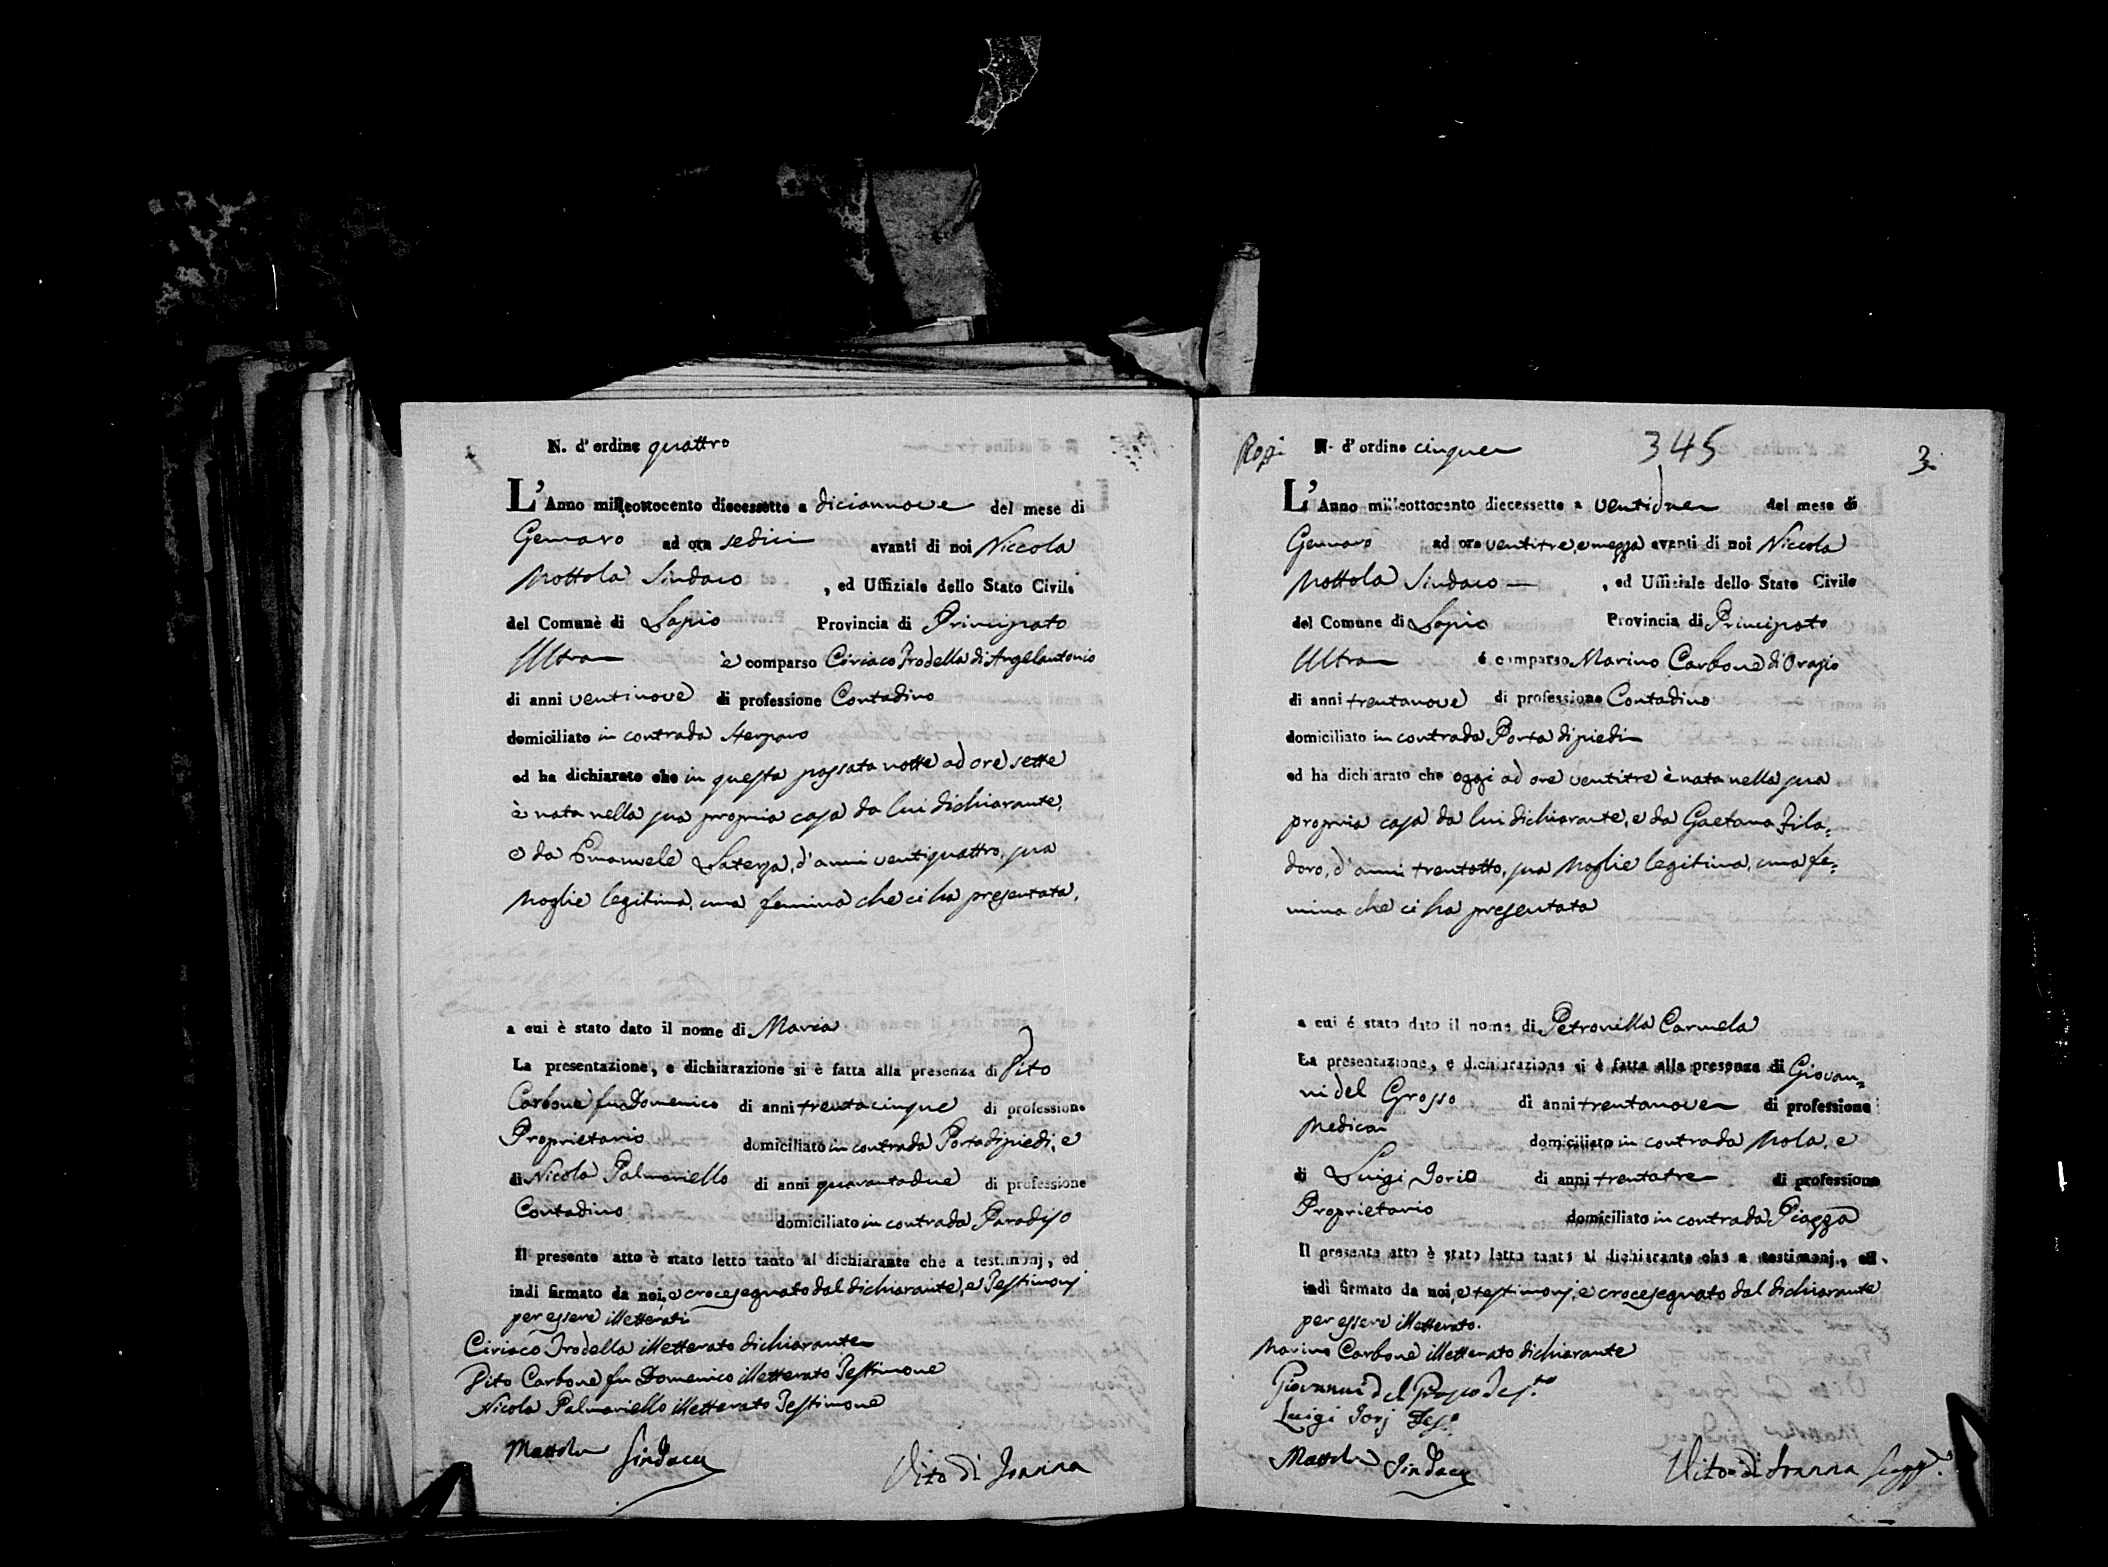 N. d' ordine quattro
L' Anno milleottocento diecessette a diciannove del mese di
Gennaro ad ora sedici avanti di noi Niccola
Mottola Sindaco , ed Uffiziale dello Stato Civile
del Comune di Lapio Provincia di Principato
Ultra è comparso Ciriaco Trodella di Angelantonio
di anni ventinove di professione Contadino
domiciliato in contrada Sterparo
ed ha dichiarato che in questa passata notte ad ore sette
è nata nella sua propria casa da lui dichiarante,
e da Emanuele Laterza, d'anni ventiquattro, sua
Moglie legitima, una femina che ci ha presentata,
a cui è stato dato il nome di Maria
La presentazione, e dichiarazione si è fatta alla presenza di Vito
Carbone fu Domenico di anni trentacinque di professione
Proprietario domiciliato in contrada Portadipiedi, e
di Nicola Palmariello di anni quarantadue di professione
Contadino domiciliato in contrada Paradiso
Il presente atto è stato letto tanto al dichiarante che a testimonj, ed
indi firmato da noi, e crocesegnato dal dichiarante, e Testimonj
per essere illetterati
Ciriaco Trodella illetterato dichiarante
Vito Carbone fu Domenico illetterato Testimone
Nicola Palmariello illetterato Testimone
Mottola Sindaco
Vito di Joanna
N. d' ordine cinque 345 3
L' Anno milleottocento diecessette a ventidue del mese di
Gennaro ad ora ventitre, e mezza avanti di noi Niccola
Mottola Sindaco — , ed Uffiziale dello Stato Civile
del Comune di Lapio Provincia di Principato
Ultra é comparso Marino Carbone di Orazio
di anni trentanove di professione Contadino
domiciliato in contrada Porta di piedi
ed ha dichiarato che oggi ad ore ventitre è nata nella sua
propria casa da lui dichiarante, e da Gaetana Fila=
doro, d' anni trentotto, sua Moglie legitima, una fe=
mina che ci ha presentata
a cui é stato dato il nome di Petronilla Carmela
La presentazione, e dichiarazione si è fatta alla presenza di Giovan=
ni del Grosso di anni trentanove di professione
Medico domiciliato in contrada Mola, e
di Luigi Jorio di anni trentatre di professione
Proprietario domiciliato in contrada Piazza
Il presente atto è stato letto tanto al dichiarante che a testimonj, ed
indi firmato da noi, e testimonj, e crocesegnato dal dichiarante
per essere illetterato.
Marino Carbone illetterato dichiarante
Giovanni del Grosso Tes.to
Luigi Jorj Tes.o
Mottola Sindaco
Vito di Joanna